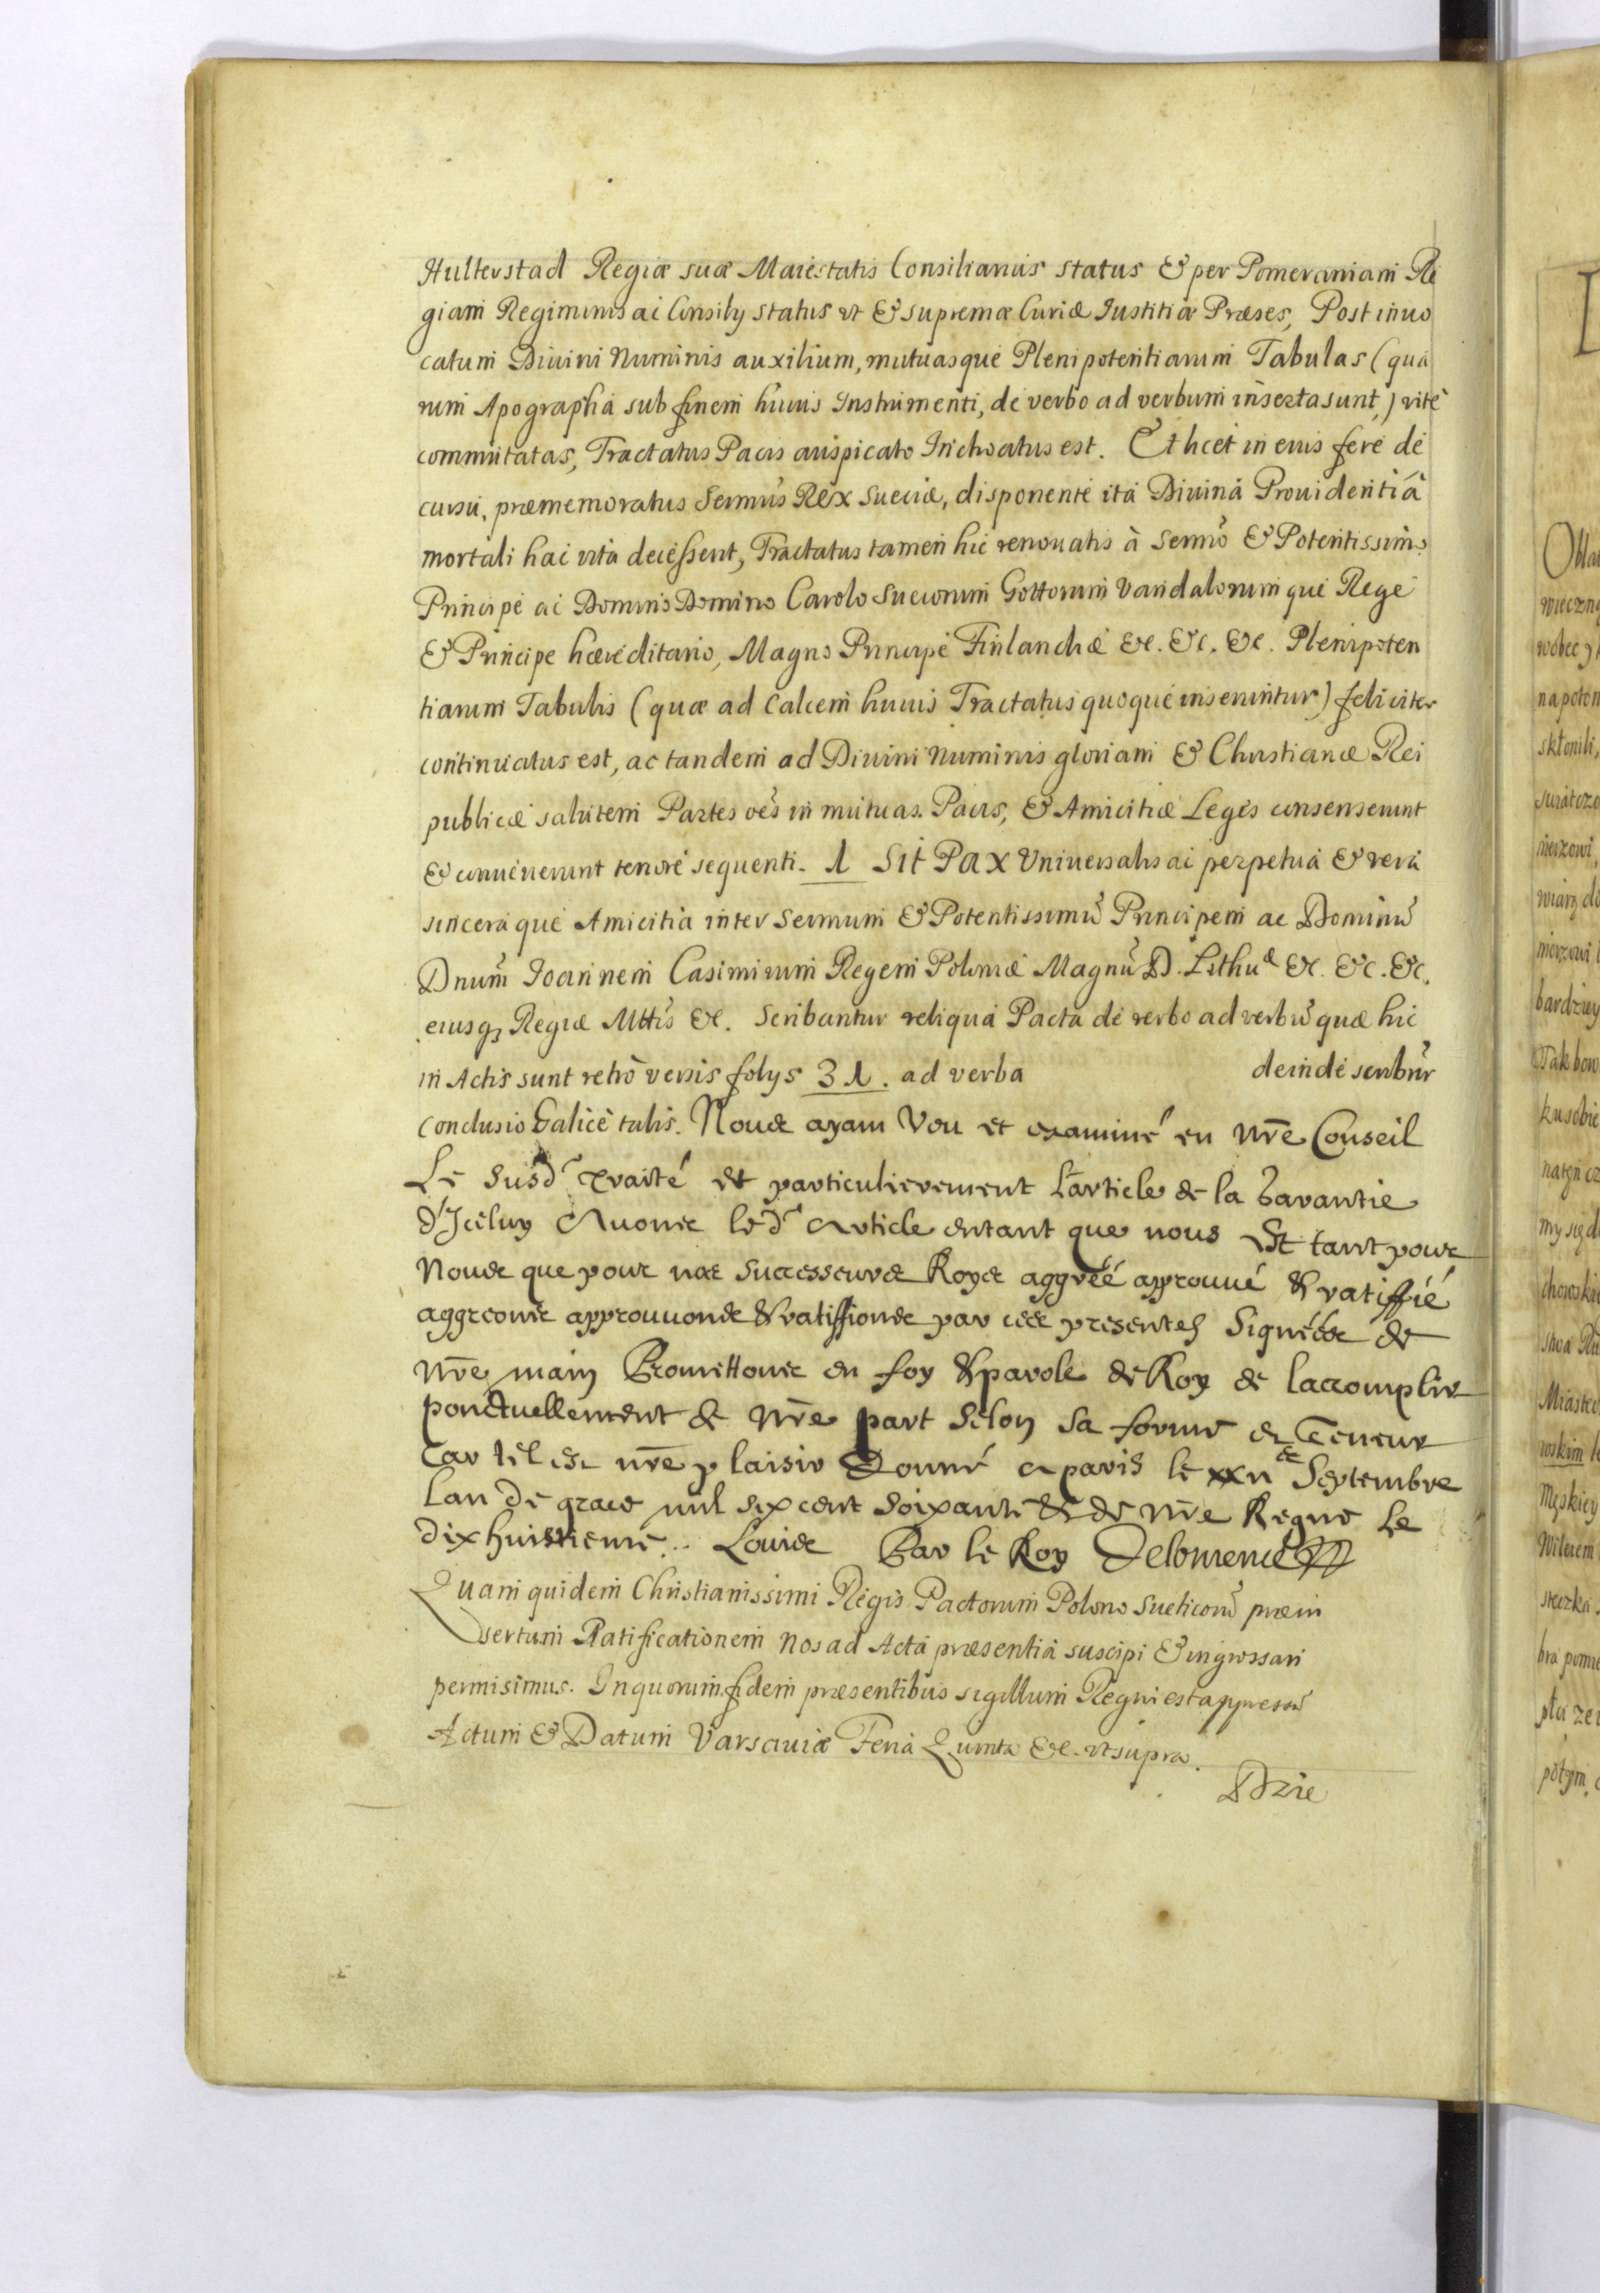 Hulterstad Regiæ suæ Maiestatis Consiliarius status & per Pomeraniam Re
giam Regiminis ac Consily status ut & supremæ Curiæ Iustitiæ Præses, Post inuo
catum Diuini Numinis auxilium, mutuasque Plenipotentiarum Tabulas (qua
rum Apographa sub finem huius Instrumenti, de verbo ad verbum inserta sunt,) ritè
commutatas, Tractatus Pacis auspicato Inchoatus est. Et licet in eius fere de
cursu, præmemoratus Sermus Rex Sueciæ, disponente ita Diuinâ Prouidentiâ
mortali hac vita decessent, Tractatus tamen hic renouatis à Sermo & Potentissimo
Principe ac Domino Domino Carolo Suecorum Gottorum Vandalorumque Rege
& Principe hæreditario, Magno Principe Finlandiæ &c. &c. &c. Plenipoten
tiarum Tabulis (quæ ad Calcem huius Tractatus quoque inseruntur) feliciter
continuatus est, ac tandem ad Diuini Numinis gloriam & Christianæ Rei
publicæ salutem Partes oēs in mutuas Pacis, & Amicitiæ Leges consenserunt
& conuenerunt tenore sequenti. 1 Sit Pax Vniuersalis ac perpetua & vera
sinceraque Amicitia inter Sermum & Potentissimū Principem ac Dominū
Dnum Ioannem Casimirum Regem Poloniæ Magnū D. Lithuæ &c. &c. &c.
eiusq3 Regiæ Mttis &c. Scribantur reliqua Pacta de verbo ad verbū quæ hic
in Actis sunt retrò versis folys 31. ad verba deinde scribūr
conclusio Galicè talis. Nous ayans Veu et examiné en nr̄e Conseil
Le susd̄ Traité et particulierement L'article de la Garantie
d'Iceluy Auons led̄ Article entant que nous Est tant pour
Nous que pour nos successeurs Roys aggréé approuué & ratiffié
aggreons approuuons & ratiffions par ces presentes Signées de
Nr̄e main Promettons en foy & parole de Roy de laccomplir
ponctuellement de Nr̄e part selon sa forme et Teneur
Car tel est nr̄e plaisir Donné a paris le Septembre
Lan de grace mil six cent soixante & de Nr̄e Regne Le
dixhuistieme.. Louis Par le Roy Delomenie
Quam quidem Christianissimi Regis Pactorum Polono Sueticorū præin
sertam Ratificationem nos ad Acta præsentia suscipi & ingrossari
permisimus. In quorum fidem præsentibus sigillum Regni est appressū
Actum & Datum Varsauiæ Feria Quinta &c. ut supra.
Dzie